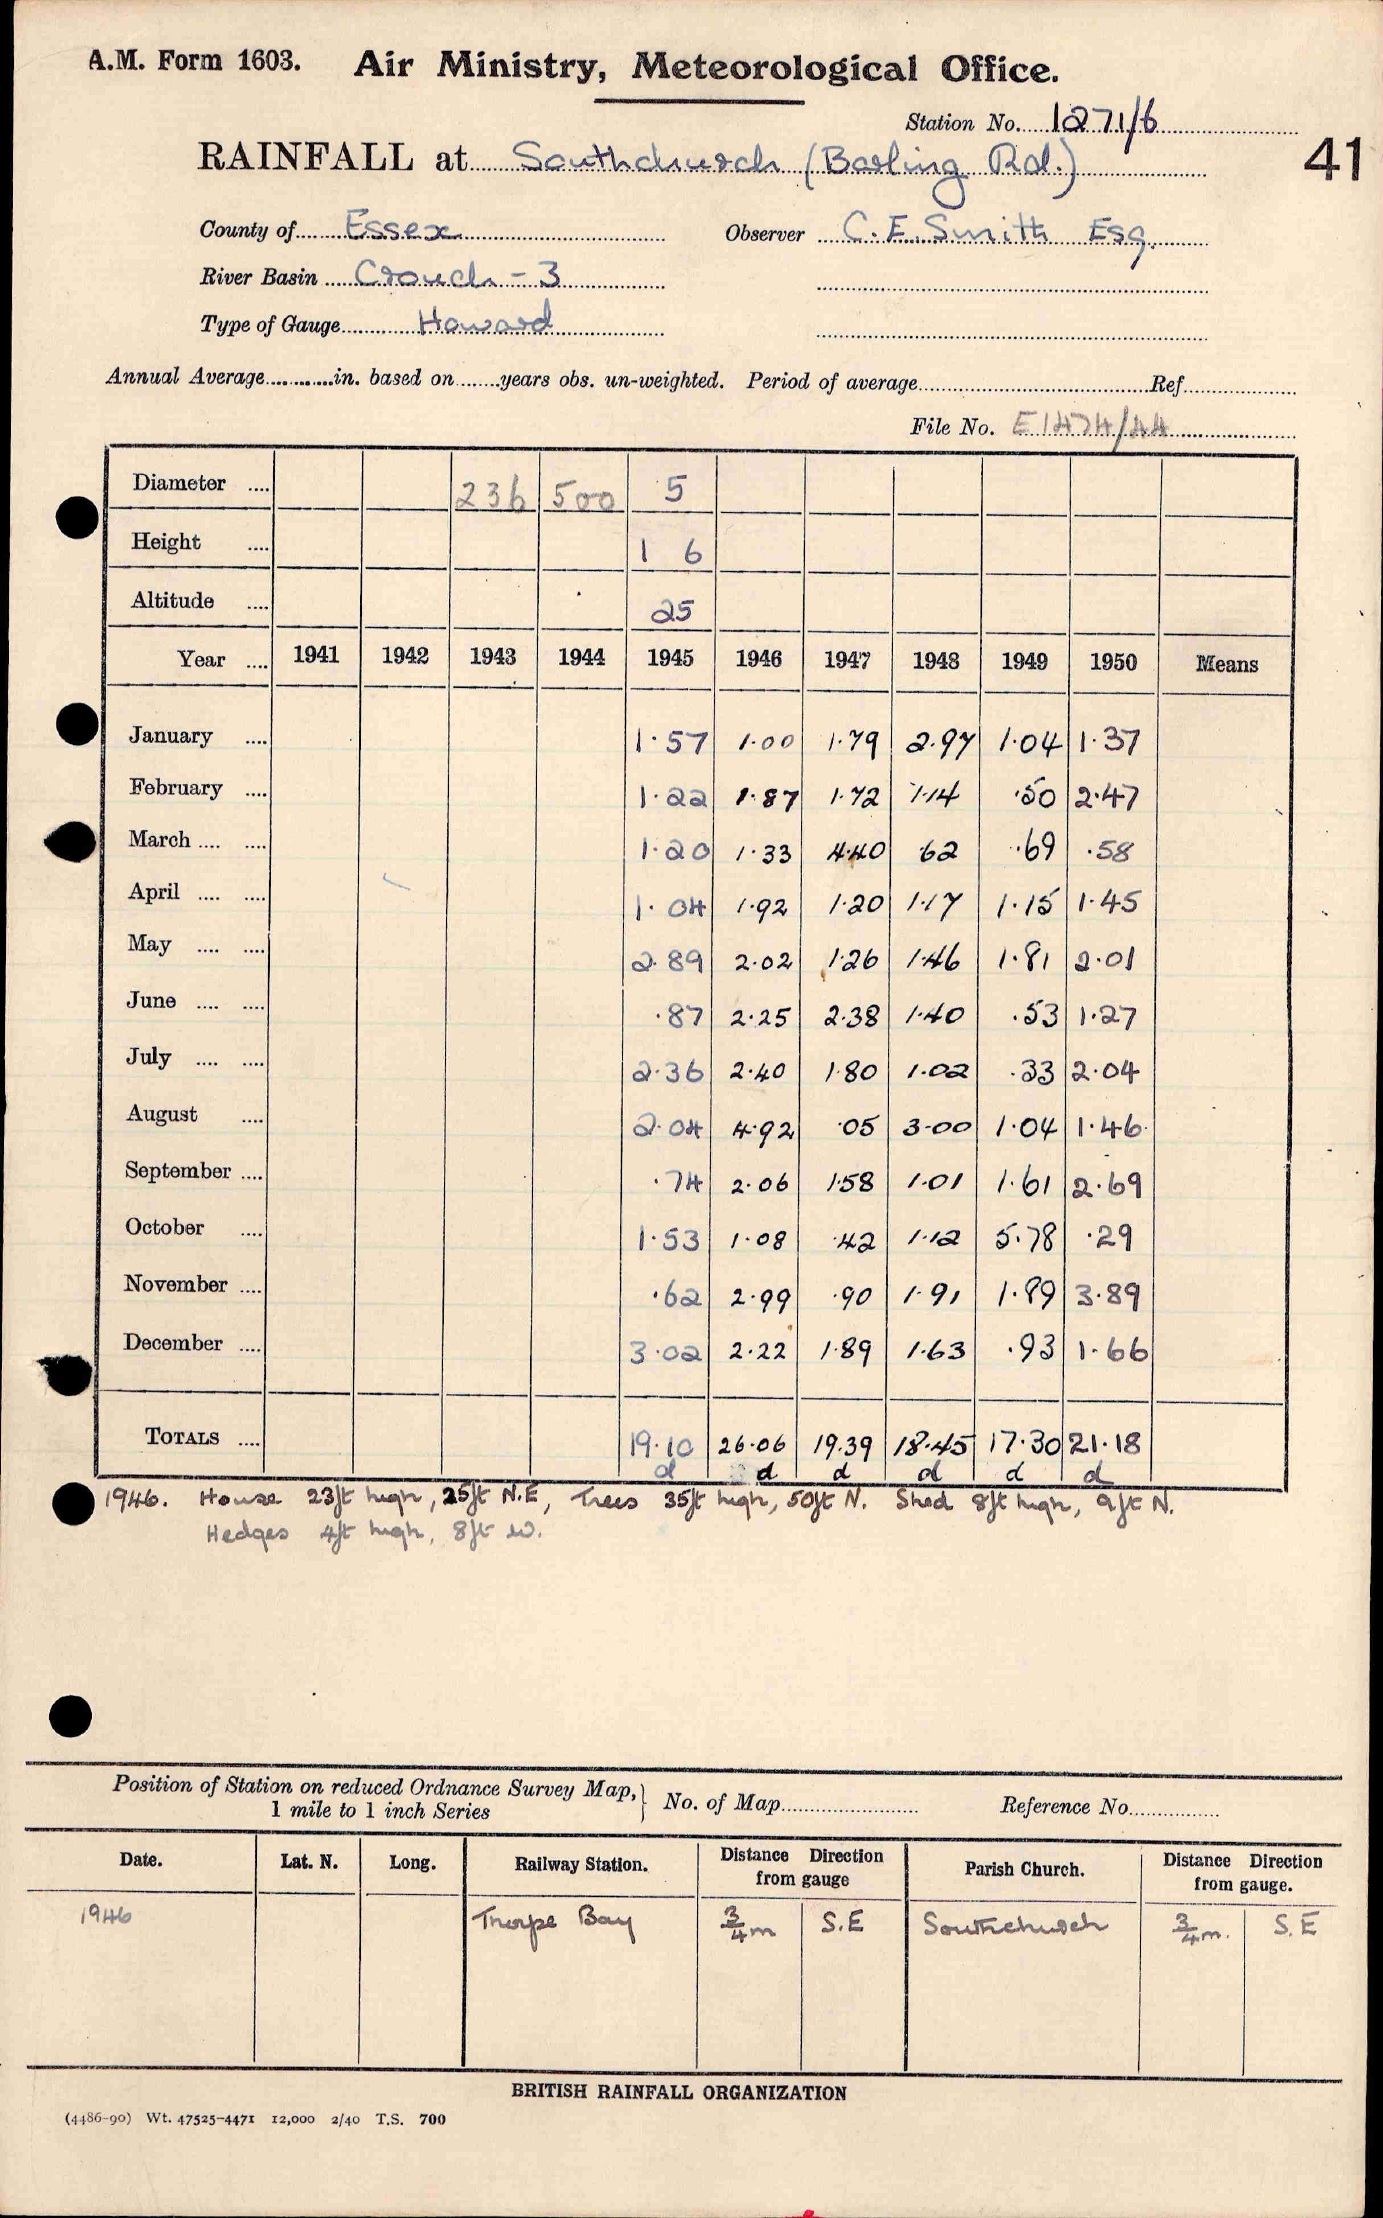 A.M. Form 1603. Air Ministry, Meteorological Office.
Station No. 1271/6
RAINFALL at Southchurch (Barling Rd.) 41
County of Essex Observer C. E. Smith Esq.
River Basin Crouch - 3
Type of Gauge Howard
Annual Average............in. based on........years obs. un-weighted. Period of average........Ref........
File No. E1474/44
Diameter .... 236 500 5
Height .... 1 6
Altitude .... 25
Year .... 1941 1942 1943 1944 1945 1946 1947 1948 1949 1950 Means
January .... 1.57 1.00 1.79 2.97 1.04 1.37
February .... 1.22 1.87 1.72 1.14 .50 2.47
March .... .... 1.20 1.33 4.40 .62 .69 .58
April .... .... 1.04 1.92 1.20 1.17 1.15 1.45
May .... .... 2.89 2.02 1.26 1.46 1.81 2.01
June .... .... .87 2.25 2.38 1.40 .53 1.27
July .... .... 2.36 2.40 1.80 1.02 .33 2.04
August .... 2.04 4.92 .05 3.00 1.04 1.46
September .... .74 2.06 1.58 1.01 1.61 2.69
October .... 1.53 1.08 .42 1.12 5.78 .29
November .... .62 2.99 .90 1.91 1.89 3.89
December .... 3.02 2.22 1.89 1.63 .93 1.66
TOTALS .... 19.10 26.06 19.39 18.45 17.30 21.18
d d d d d d
1946. House 23ft high, 25ft N.E, Trees 35ft high, 50ft N. Shed 8ft high, 9ft N.
Hedges 4ft high, 8ft W.
Position of Station on reduced Ordnance Survey Map,} No. of Map........ Reference No........
1 mile to 1 inch Series
Date. Lat. N. Long. Railway Station. Distance Direction from gauge Parish Church. Distance Direction from gauge.
1946 Thorpe Bay 3/4 m S.E Southchurch 3/4 m. S.E
BRITISH RAINFALL ORGANIZATION
(4486-90) Wt. 47525-4471 12,000 2/40 T.S. 700